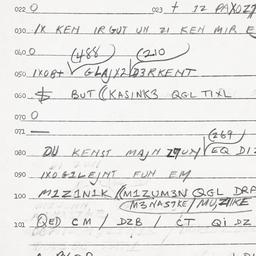 022 0 023 + 12
030 1X KEN IR GUT UN ZI KEN MIR E
040 0 (488 (210
050 1X0B+ GLAJX2 D3RKENT
060 $ BUT ((KASINK3 QGL TIXL
070 0
071 — (269
080 DU KENST MAJN EQ DI
090 1X0G1LEJNT FUN EM
100 M1Z1N1K ((M1ZUM3N QGL DRA
(M3NAS7KE / MUZIKE
101 QED CM / DZB / CT QI DZ